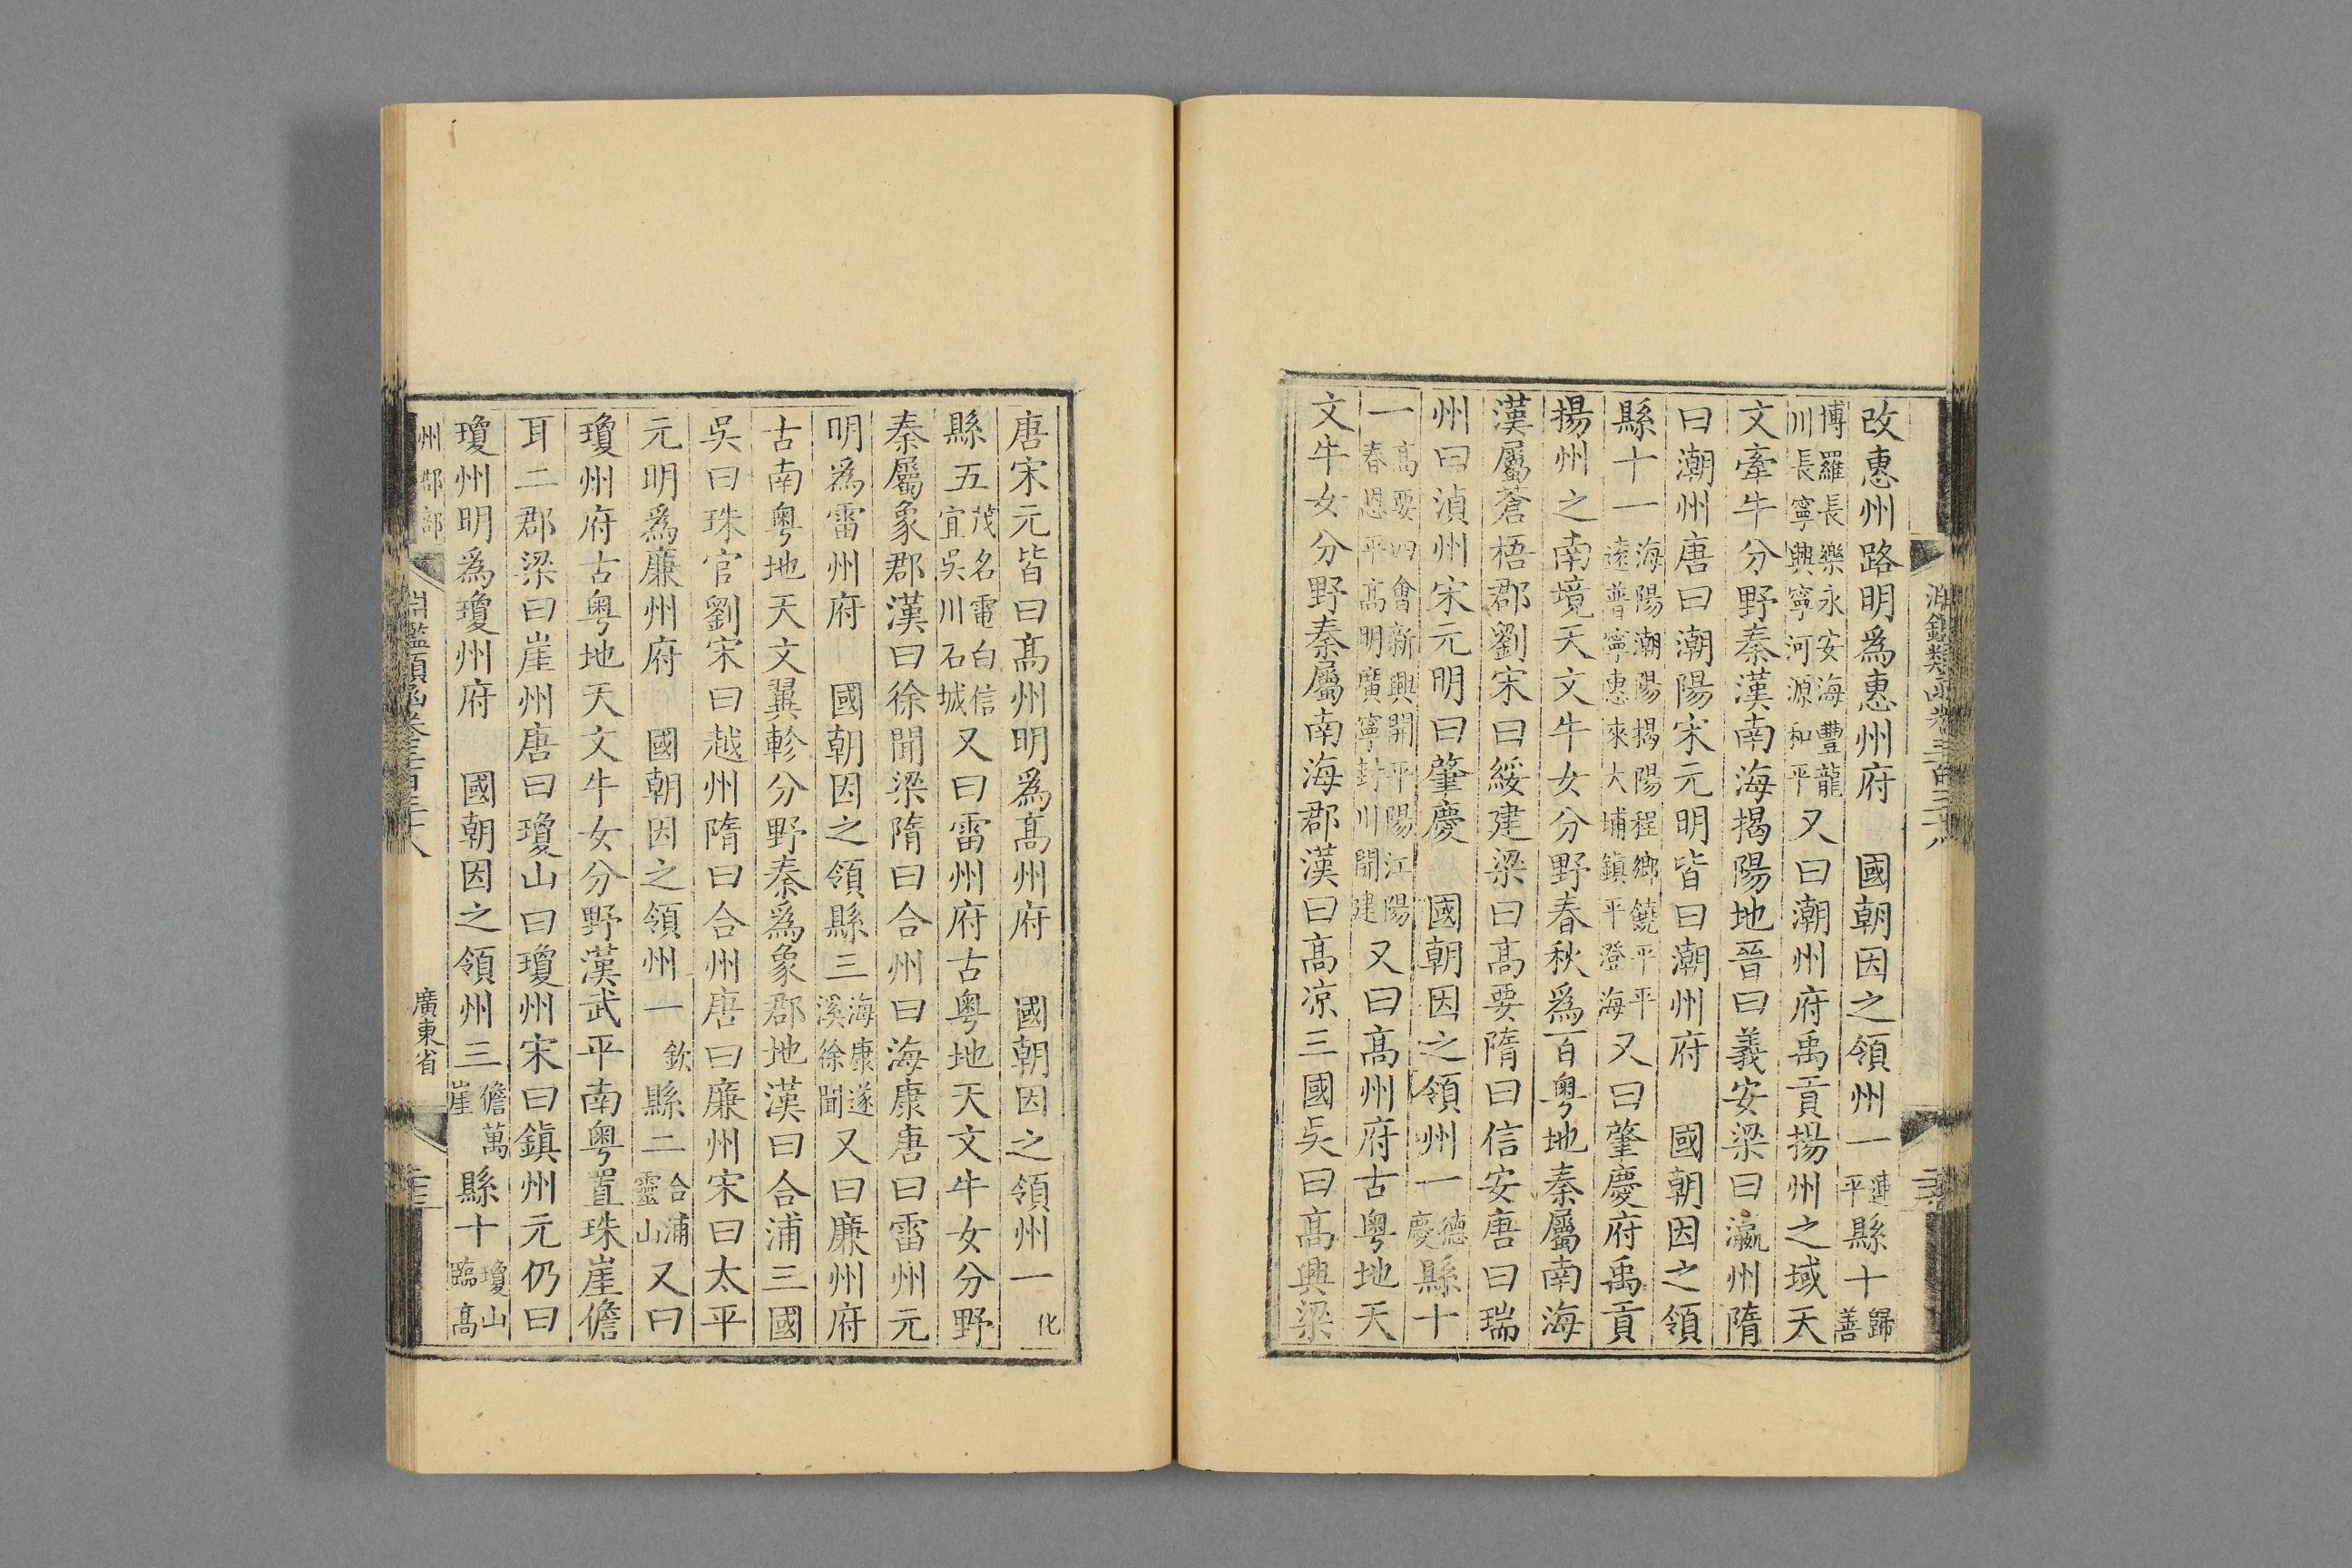 改惠州路明爲惠州府　國朝因之領州一連平縣十歸善
博羅長樂永安海豐龍川長寧興寧河源和平又曰潮州府禹貢揚州之域天
文牽牛分野秦漢南海揭陽地晉曰義安梁曰瀛州隋
曰潮州唐曰潮陽宋元明皆曰潮州府　國朝因之領
縣十一海陽潮陽揭陽程鄉饒平平遠普寧惠來大埔鎮平澄海又曰肇慶府禹貢
揚州之南境天文牛女分野春秋爲百粵地秦屬南海
漢屬蒼梧郡劉宋曰綏建梁曰高要隋曰信安唐曰瑞
州曰湞州宋元明曰肇慶　國朝因之領州一德慶縣十
一高要四會新興開平陽江陽春恩平高明廣寧封川開建又曰高州府古粵地天
文牛女分野秦屬南海郡漢曰高凉三國吳曰高興梁
唐宋元皆曰高州明爲高州府　國朝因之領州一化
縣五茂名電白信宜吳川石城又曰雷州府古粵地天文牛女分野
秦屬象郡漢曰徐聞梁隋曰合州曰海康唐曰雷州元
明爲雷州府　國朝因之領縣三海康遂溪徐聞又曰廉州府
古南粵地天文翼軫分野秦爲象郡地漢曰合浦三國
吳曰珠官劉宋曰越州隋曰合州唐曰廉州宋曰太平
元明爲廉州府　國朝因之領州一欽縣二合浦靈山又曰
瓊州府古粵地天文牛女分野漢武平南粵置珠崖儋
耳二郡梁曰崖州唐曰瓊山曰瓊州宋曰鎮州元仍曰
瓊州明爲瓊州府　國朝因之領州三儋萬崖縣十瓊山臨高
州郡部
淵鑑類函卷三百三十八
廣東省